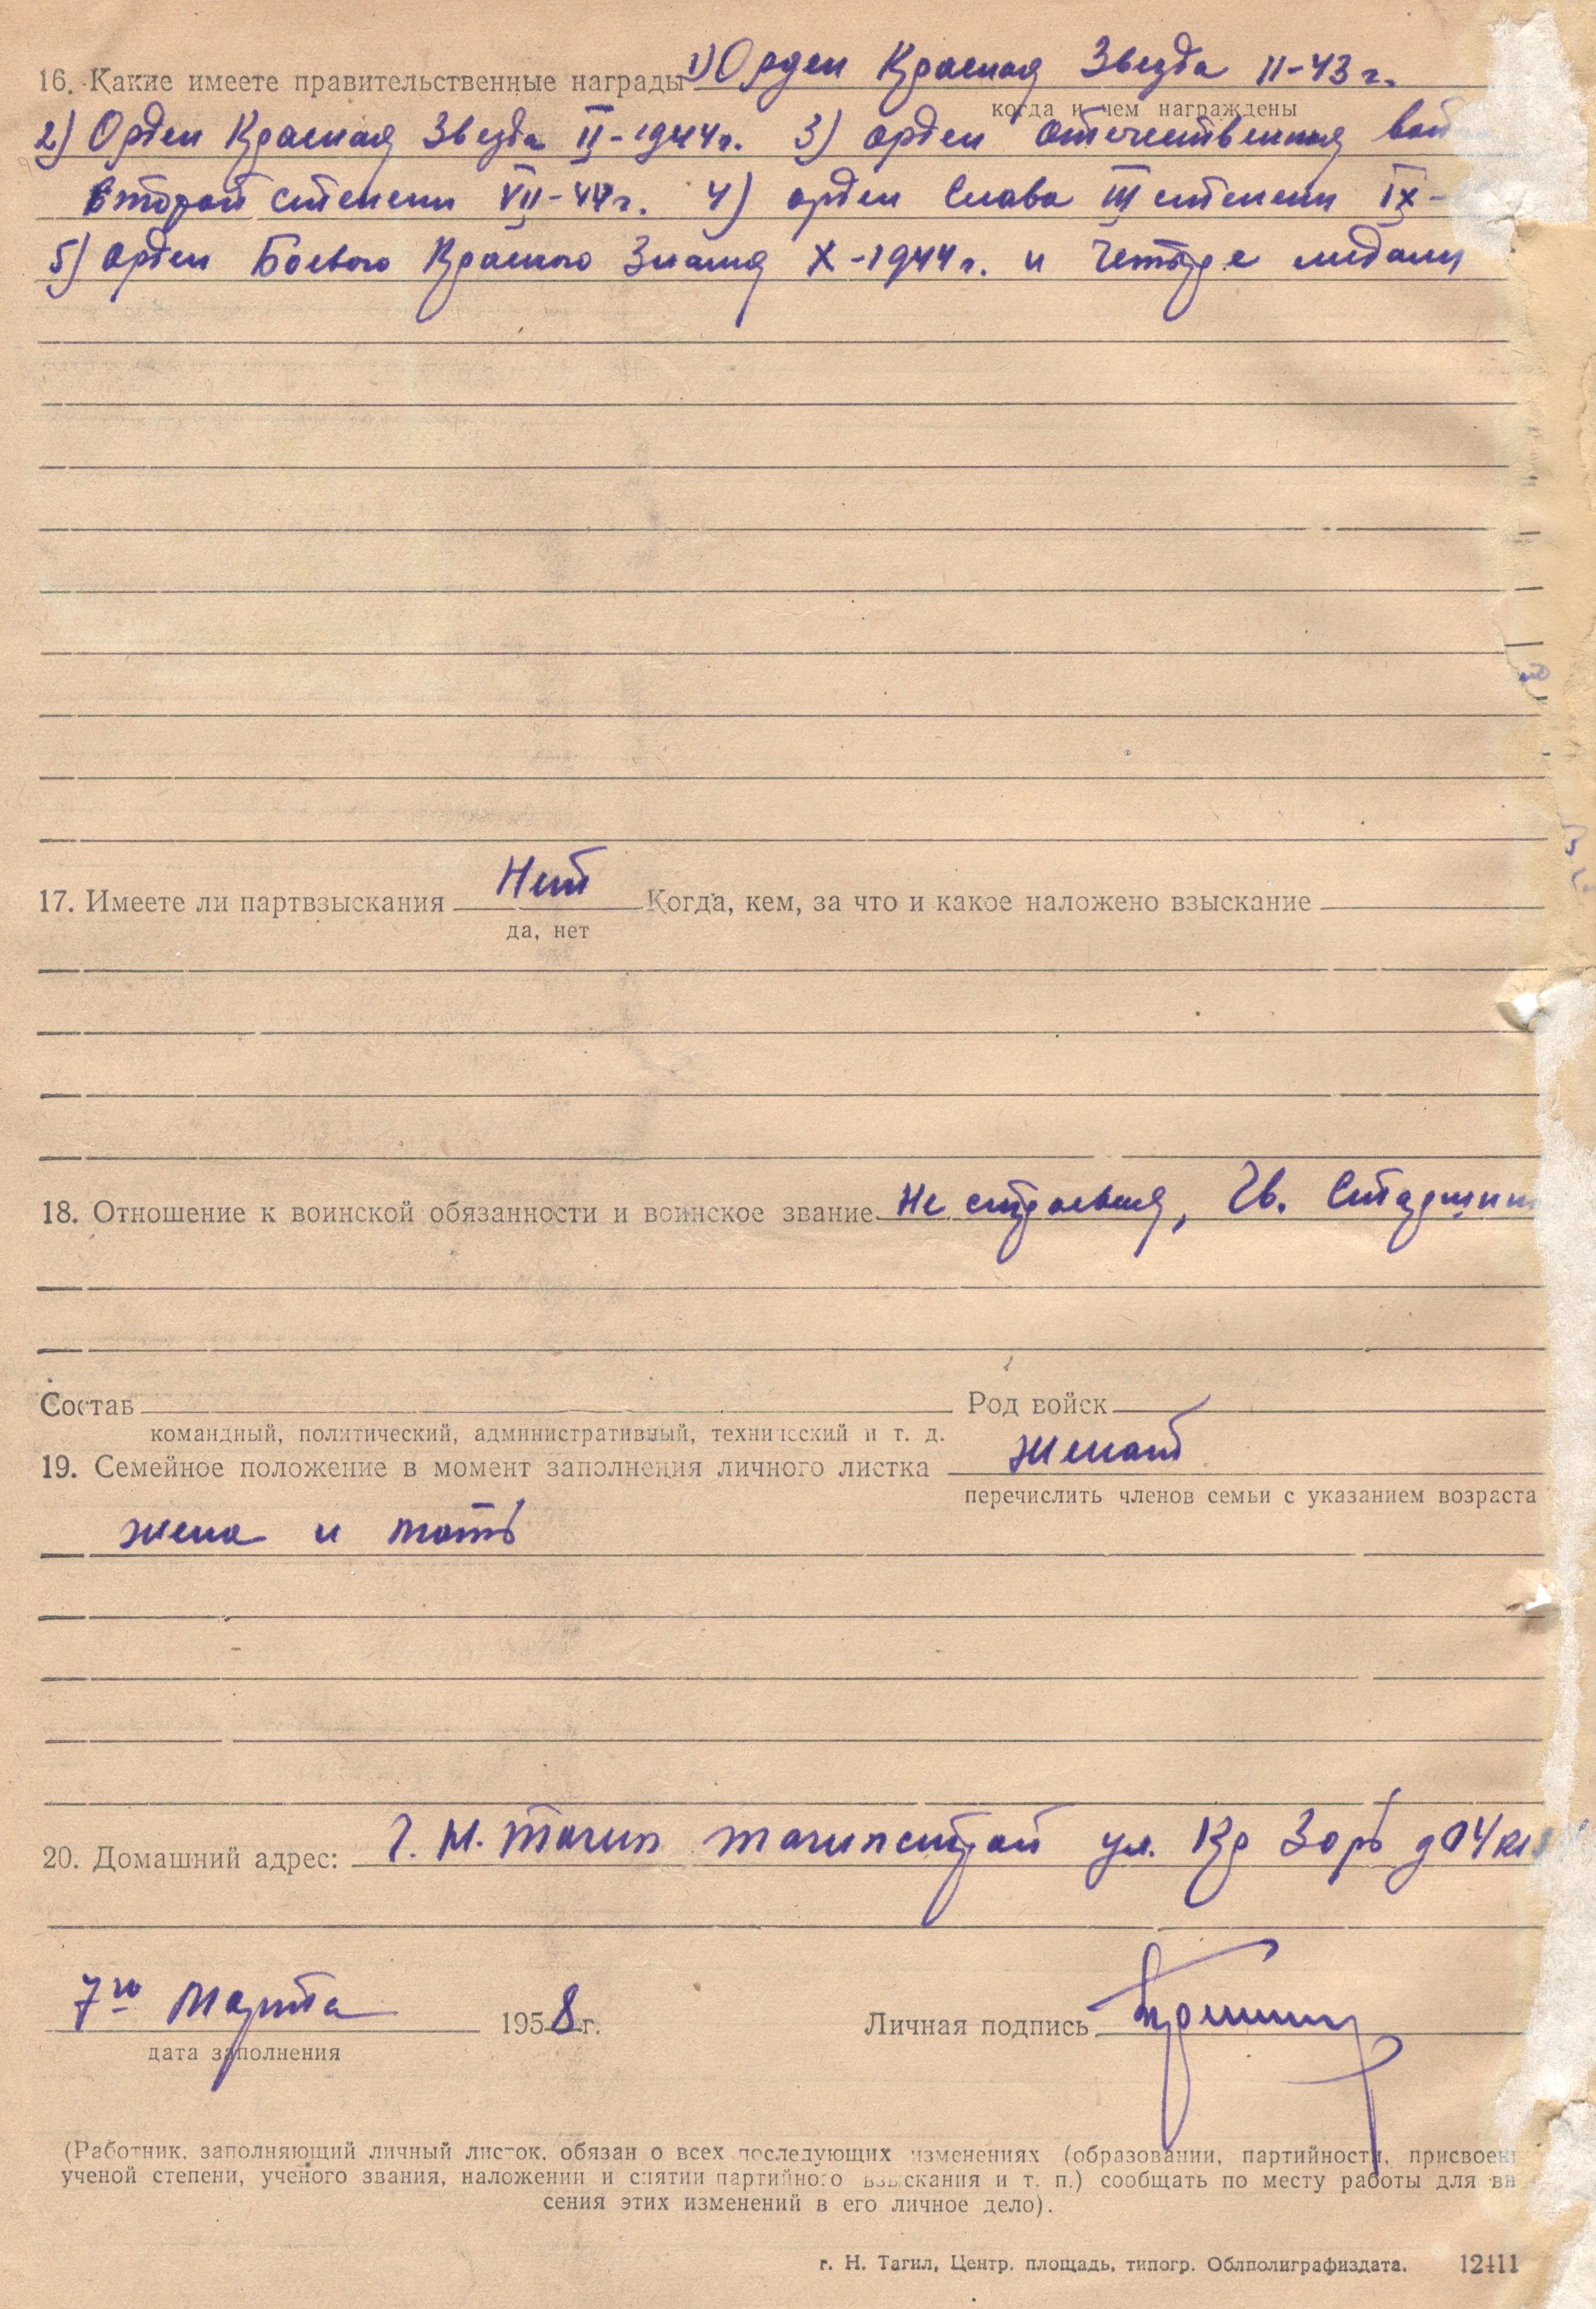 16. Какие имеете правительственные награды 1) Орден Красная Звезда II-43 г.
когда и чем награждены
2) Орден Красная Звезда II-1944 г. 3) орден отечественная
второй степени VII-44 г. 4) орден Слава III степени IX-
5) орден Боевого Красного Знамя X-1944 г. и четыре медали
17. Имеете ли партвзыскания Нет Когда, кем, за что и какое наложено взыскание
да, нет
18. Отношение к воинской обязанности и воинское звание Не строевая, Гв.
Состав Род войск
командный, политический, административный, технический и т. д.
19. Семейное положение в момент заполнения личного листка женат
перечислить членов семьи с указанием возраста
жена и мать
20. Домашний адрес: г. Н. Тагил Тагилстрой ул. Кр Зорь
7го Марта 1958 г. Личная подпись
дата заполнения
(Работник, заполняющий личный листок, обязан о всех последующих изменениях (образовании, партийности, присвоен
ученой степени, ученого звания, наложении и снятии партийного взыскания и т. п.) сообщать по месту работы для вн
сения этих изменений в его личное дело).
г. Н. Тагил, Центр. площадь, типогр. Облполиграфиздата. 12411